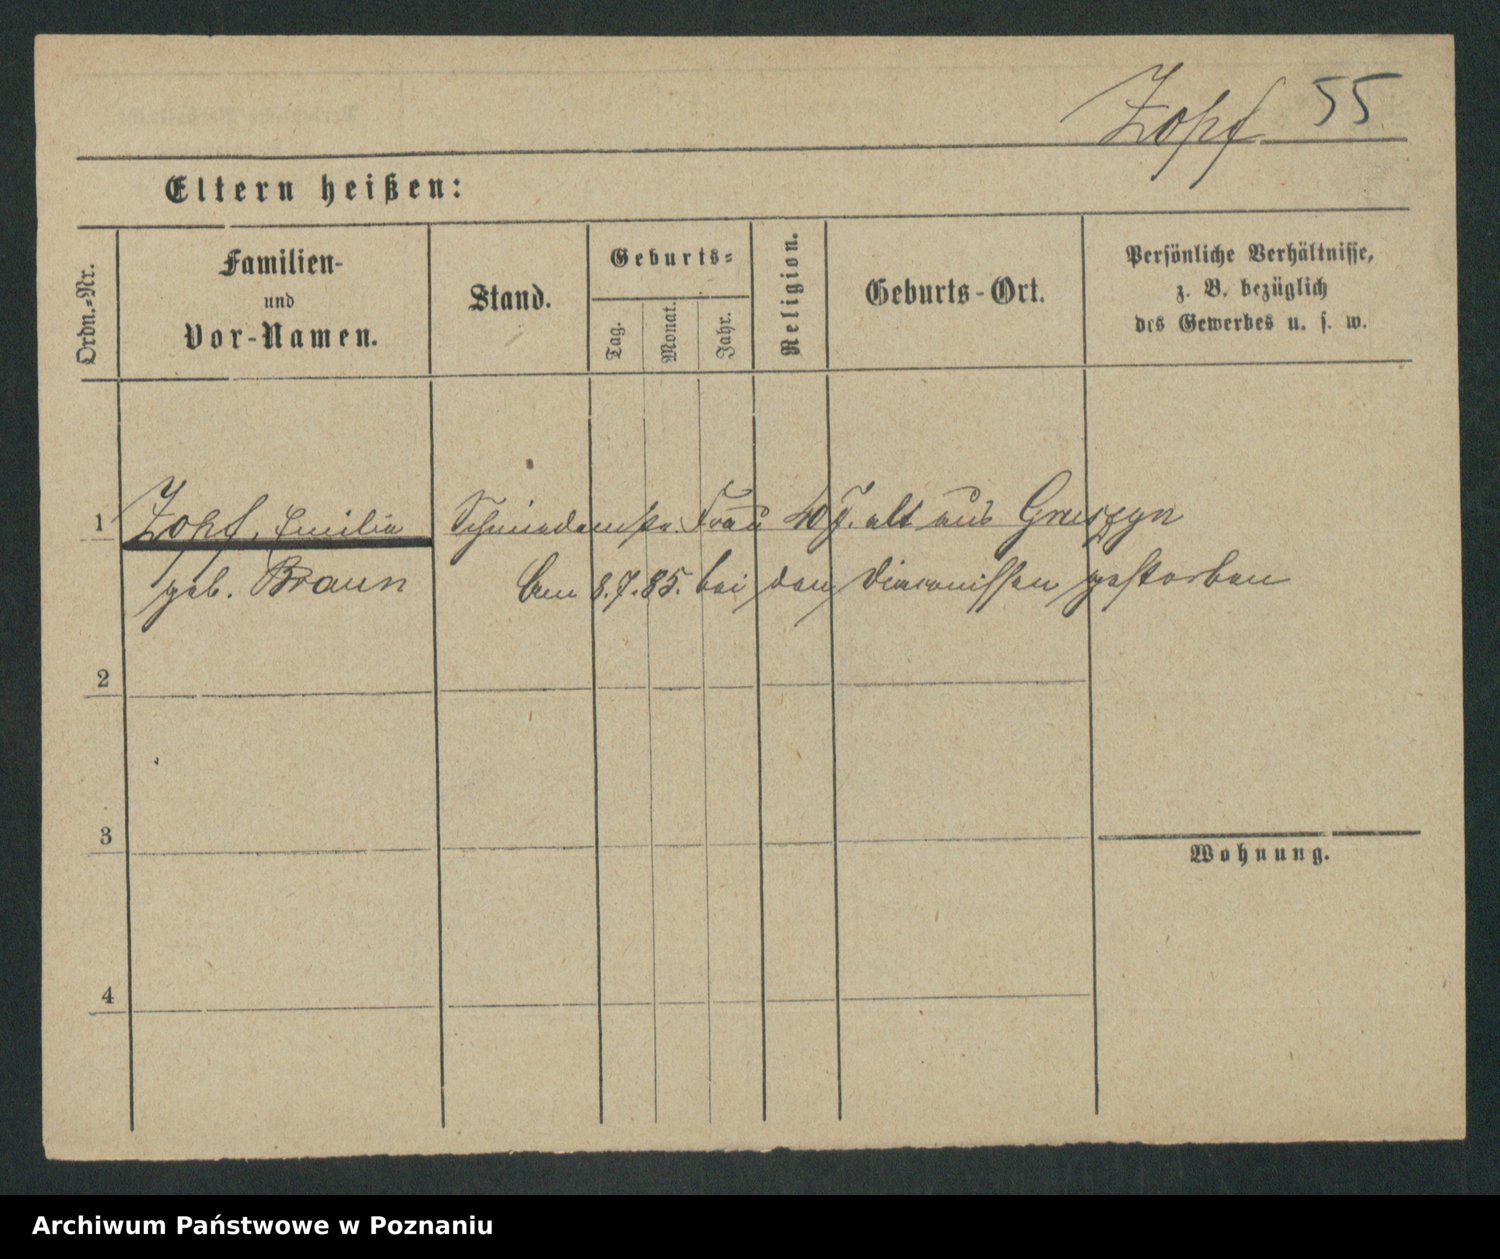 Zopf 55
Eltern heißen:
Ordn.-Nr.
Familien-
und
Vor-Namen.
Stand.
Geburts-
Tag.
Monat.
Jahr.
Religion.
Geburts-Ort.
Persönliche Verhältnisse,
z. B. bezüglich
des Gewerbes u. s. w.
1 Zopf, Emilie Frau 40 J. alt aus Gruszyn
geb. Braun am 8.7.85. bei den Diaconissen gestorben
2
3
Wohnung.
4
Archiwum Państwowe w Poznaniu